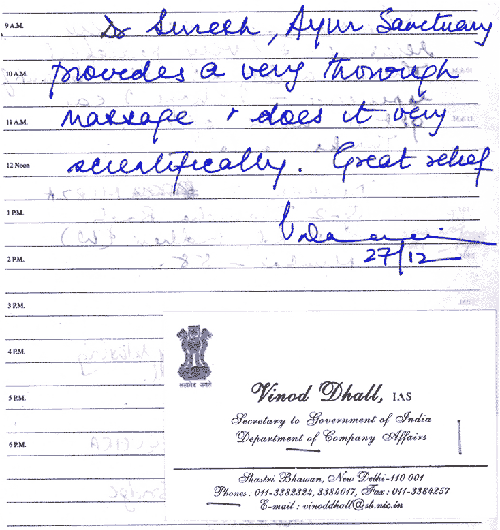 9 A.M.
Dr Suresh, Ayur Sanctuary
10 A.M.
provides a very thorough
11 A.M.
massage & does it very
12 Noon
scientifically. Great relief
1 P.M.
2 P.M.
27/12
3 P.M.
4 P.M.
सत्यमेव जयते
Vinod Dhall, IAS
5 P.M.
Secretary to Government of India
Department of Company Affairs
6 P.M.
Shastri Bhawan, New Delhi-110 001
Phones : 011-3382324, 3384017, Fax : 011-3384257
E-mail : vinoddhall@sb.nic.in